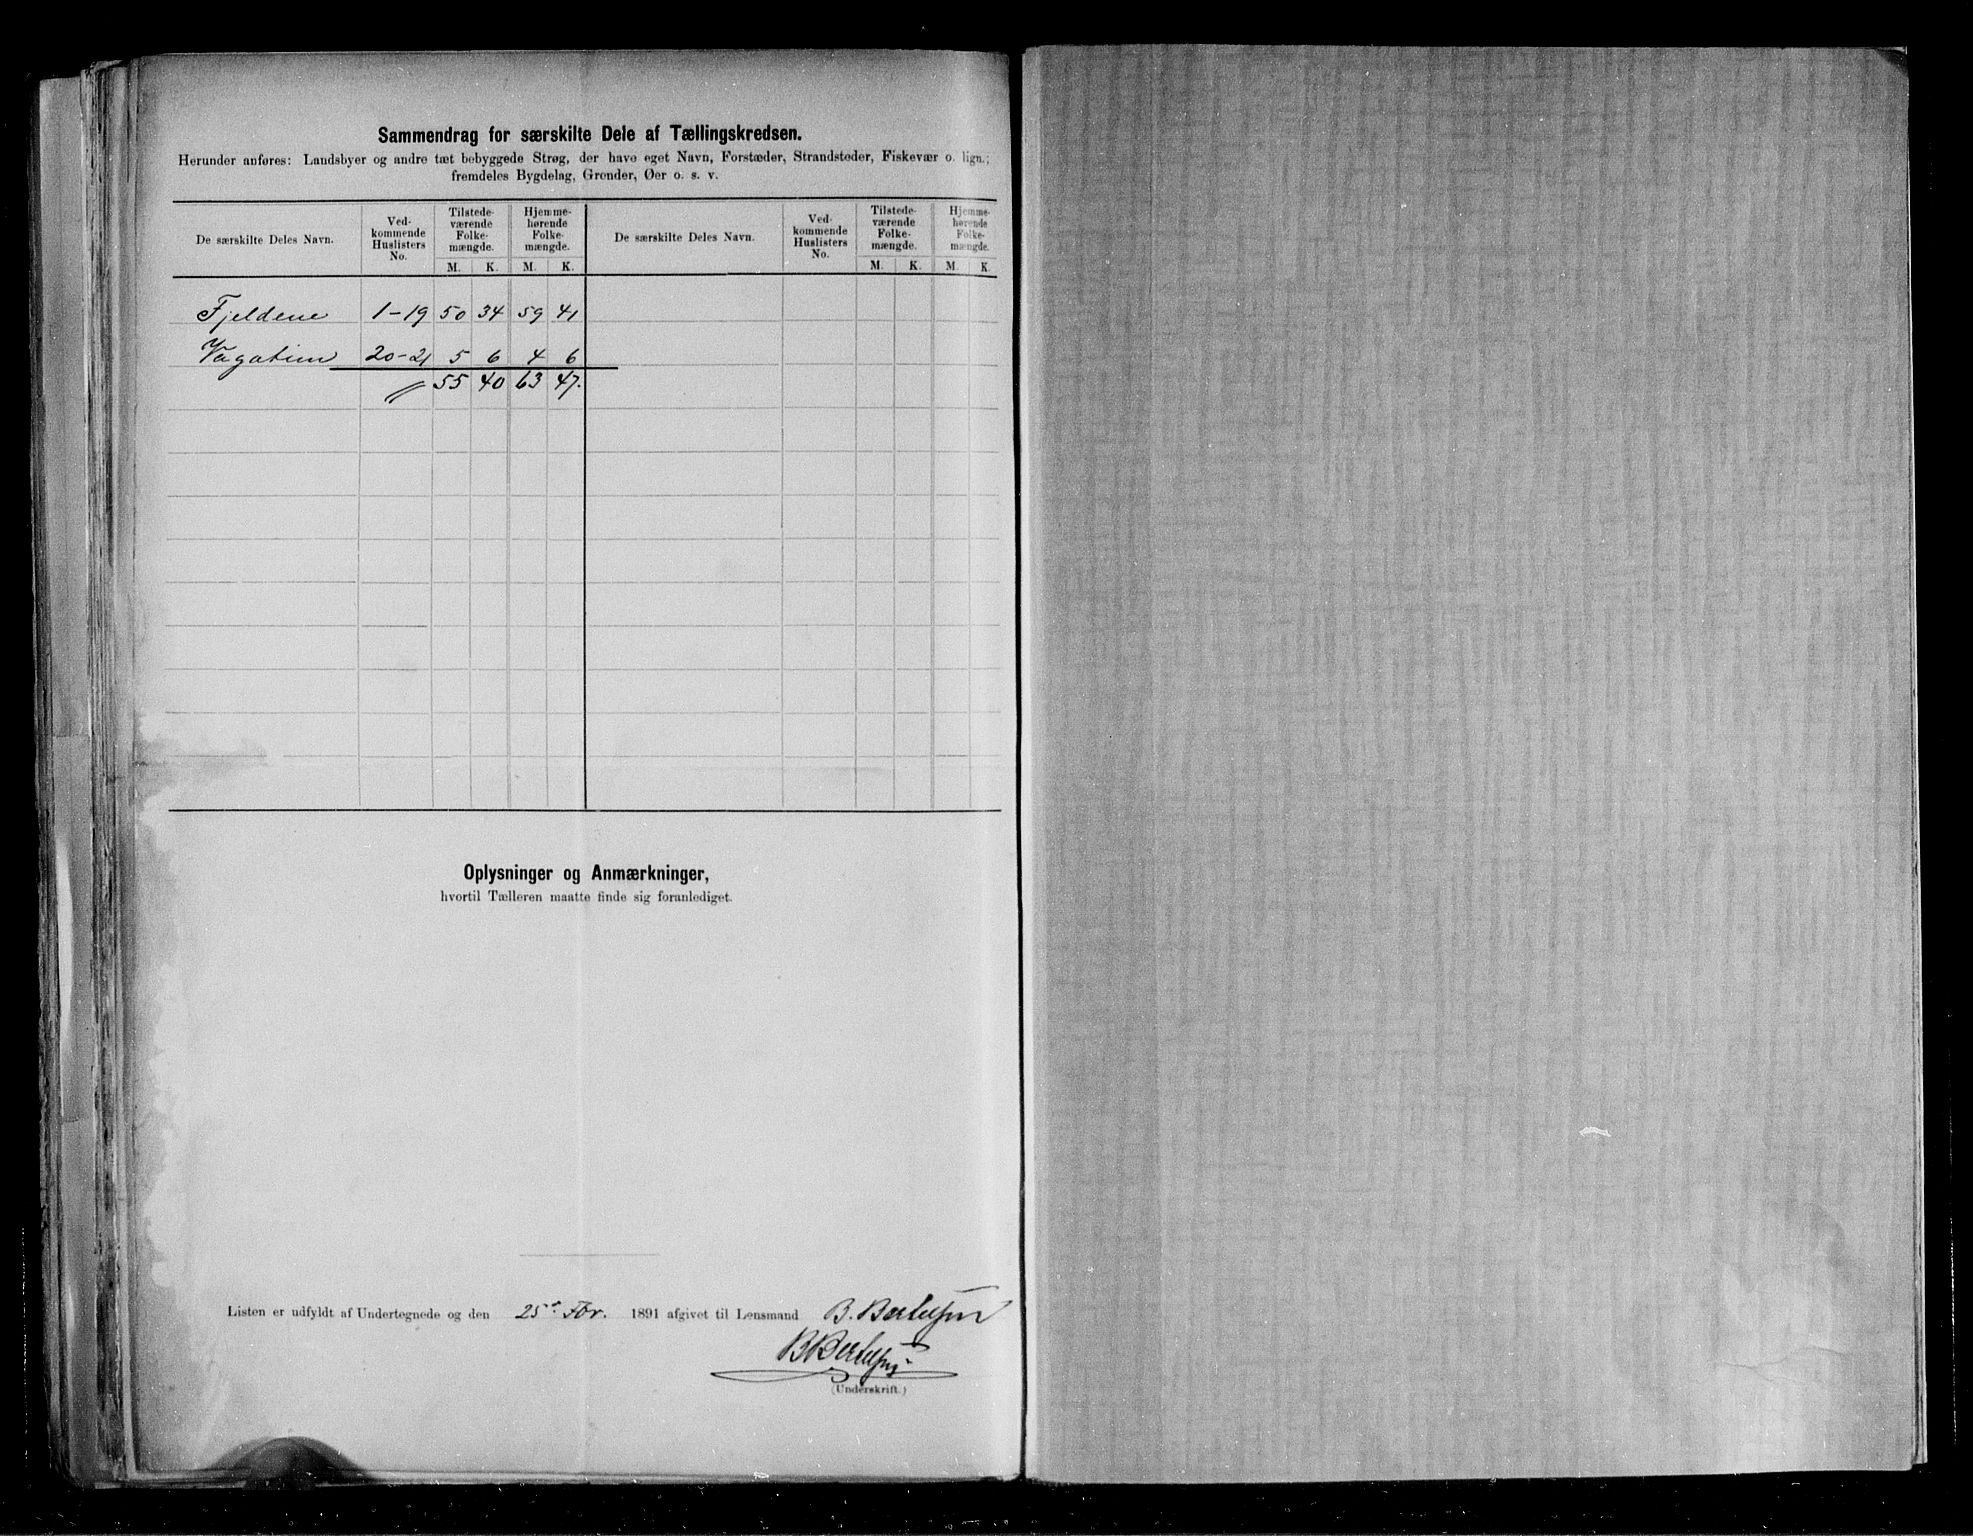 Sammendrag for særskilte Dele af Tællingskredsen.
Herunder anføres: Landsbyer og andre tæt bebyggede Strøg, der have eget Navn, Forstæder, Strandsteder, Fiskevær o. lign.;
fremdeles Bygdelag, Grender, Øer o. s. v.
De særskilte Deles Navn. Ved-kommende Huslisters No. Tilstede-værende Folke-mængde. Hjemme-hørende Folke-mængde. De særskilte Deles Navn. Ved-kommende Huslisters No. Tilstede-værende Folke-mængde. Hjemme-hørende Folke-mængde.
M. K. M. K. M. K. M. K.
Fjeldene 1-19 50 34 59 41
20-21 5 6 4 6
55 40 63 47.
Oplysninger og Anmærkninger,
hvortil Tælleren maatte finde sig foranlediget.
Listen er udfyldt af Undertegnede og den 25 1891 afgivet til Lensmand B. Bertelsen
B Bertelsen
(Underskrift.)